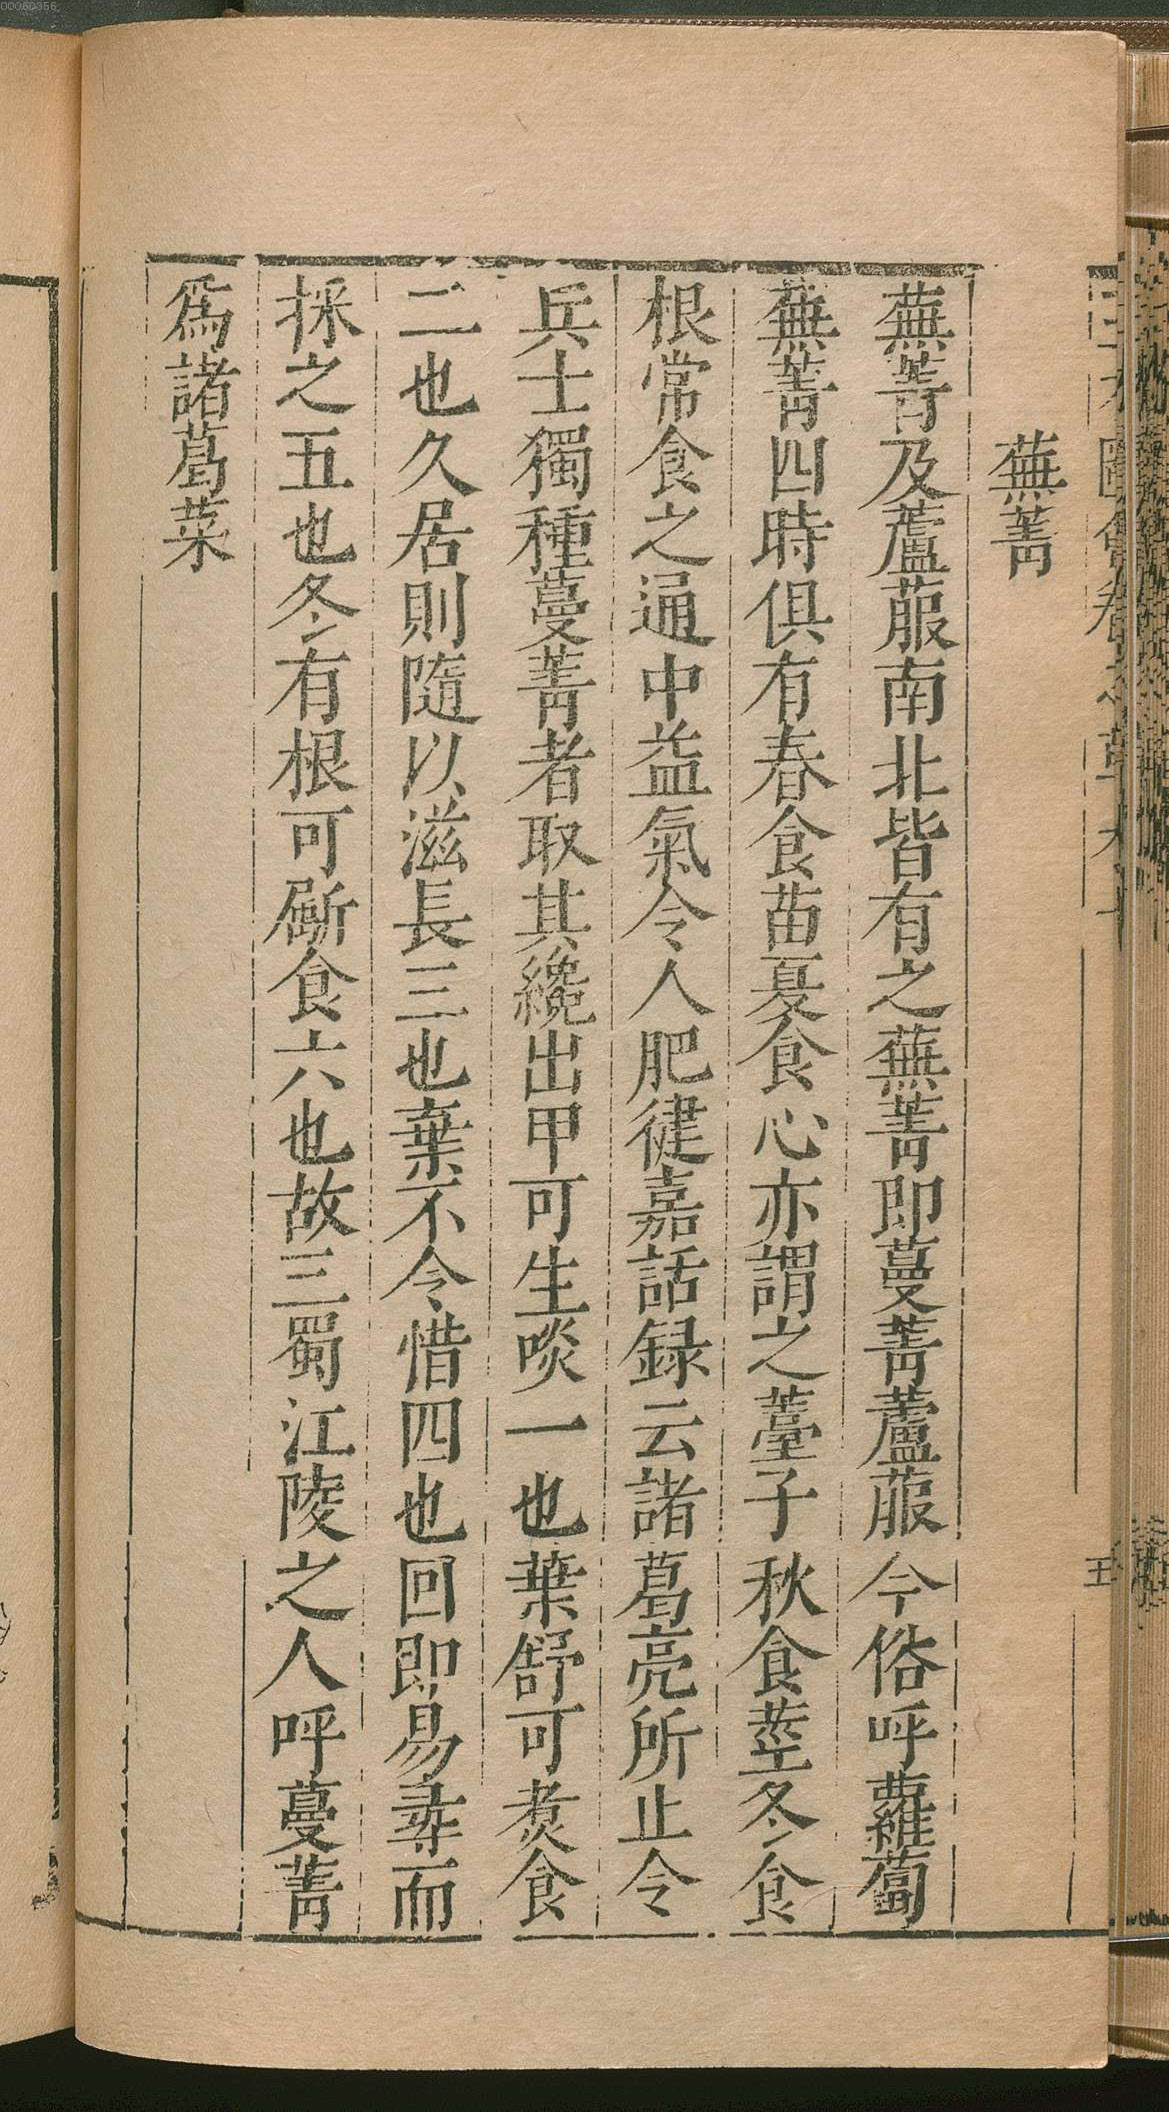 00060356
蕪菁
蕪菁及蘆菔南北皆有之蕪菁即蔓菁蘆菔今俗呼蘿蔔
蕪菁四時俱有春食苗夏食心亦謂之薹子秋食莖冬食
根常食之通中益氣令人肥健嘉話録云諸葛亮所止令
兵士獨種蔓菁者取其纔出甲可生啖一也葉舒可煑食
二也久居則隨以滋長三也棄不令惜四也回即易尋而
採之五也冬有根可斸食六也故三蜀江陵之人呼蔓菁
爲諸葛菜